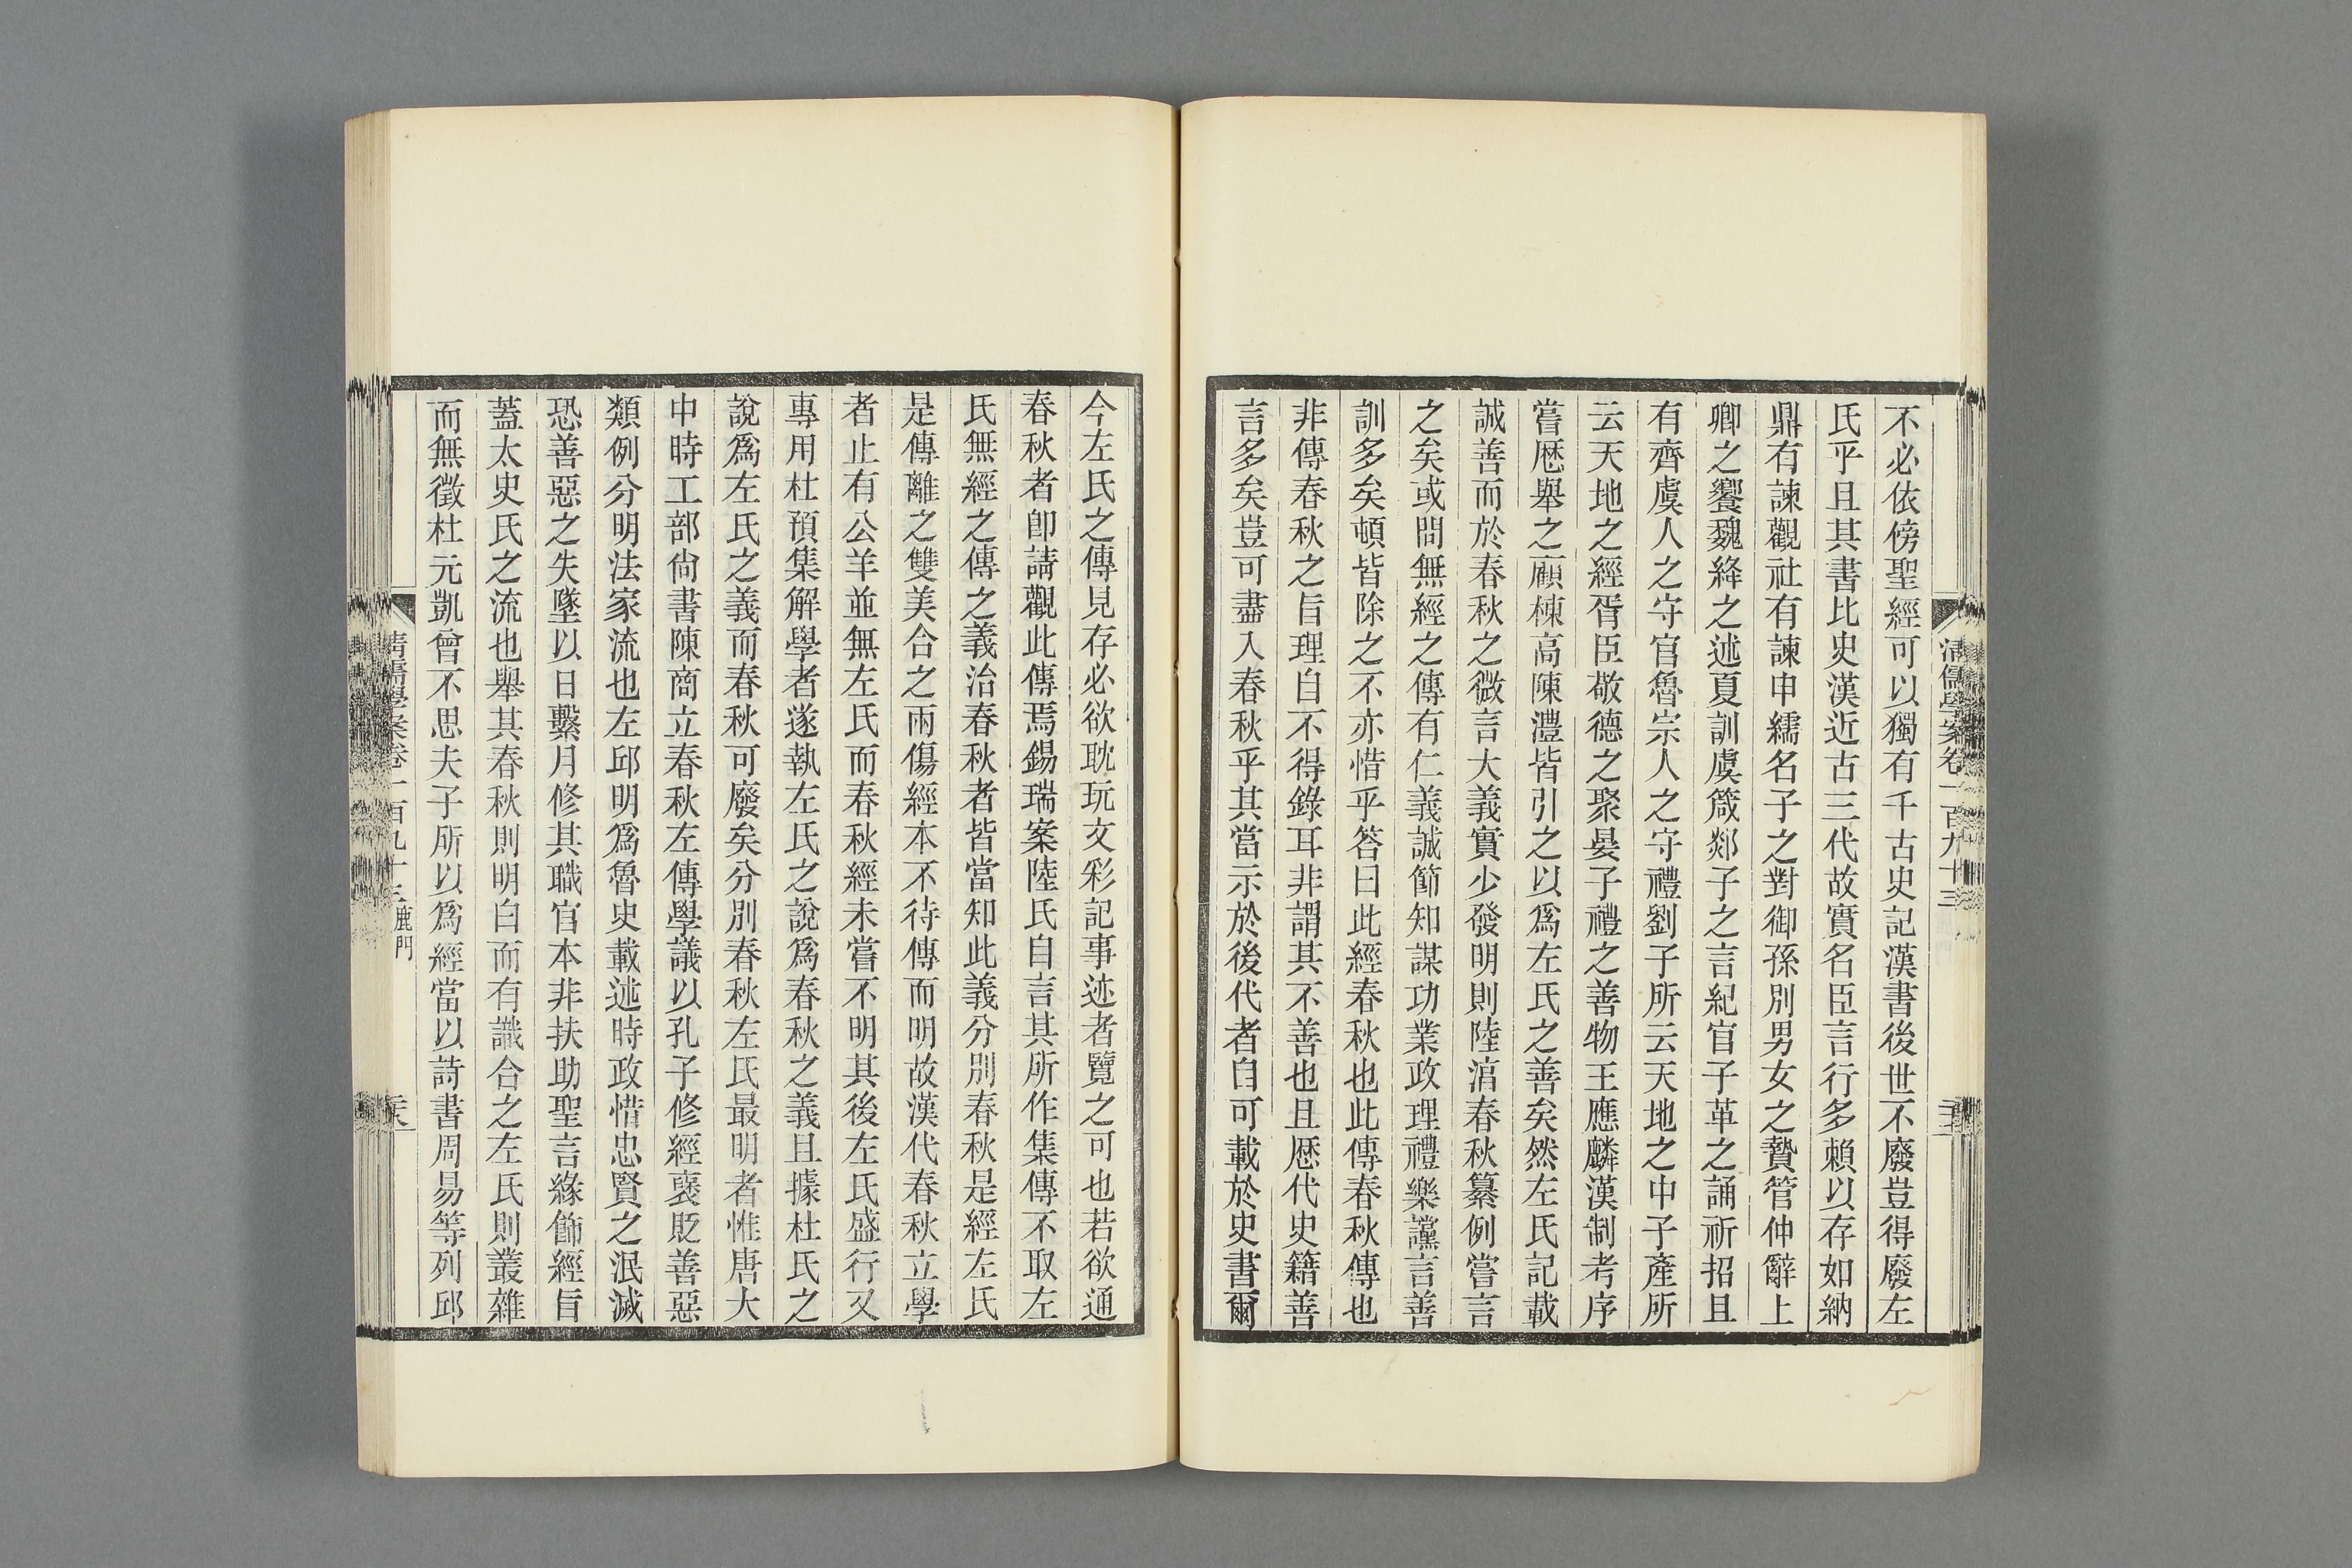 清儒學案卷一百九十三
不必依傍聖經可以獨有千古史記漢書後世不廢豈得廢左
氏乎且其書比史漢近古三代故實名臣言行多賴以存如納
鼎有諫觀社有諫申繻名子之對御孫別男女之贄管仲辭上
卿之饗魏絳之述夏訓虞箴郯子之言紀官子革之誦祈招且
有齊虞人之守官魯宗人之守禮劉子所云天地之中子產所
云天地之經胥臣敬德之聚晏子禮之善物王應麟漢制考序
嘗歷舉之顧棟高陳澧皆引之以爲左氏之善矣然左氏記載
誠善而於春秋之微言大義實少發明則陸淳春秋纂例嘗言
之矣或問無經之傳有仁義誠節知謀功業政理禮樂讜言善
訓多矣頓皆除之不亦惜乎答曰此經春秋也此傳春秋傳也
非傳春秋之旨理自不得錄耳非謂其不善也且歷代史籍善
言多矣豈可盡入春秋乎其當示於後代者自可載於史書爾
今左氏之傳見存必欲耽玩文彩記事迹者覽之可也若欲通
春秋者卽請觀此傳焉錫瑞案陸氏自言其所作集傳不取左
氏無經之傳之義治春秋者皆當知此義分別春秋是經左氏
是傳離之雙美合之兩傷經本不待傳而明故漢代春秋立學
者止有公羊並無左氏而春秋經未嘗不明其後左氏盛行又
專用杜預集解學者遂執左氏之說爲春秋之義且據杜氏之
說爲左氏之義而春秋可廢矣分別春秋左氏最明者惟唐大
中時工部尙書陳商立春秋左傳學議以孔子修經褒貶善惡
類例分明法家流也左邱明爲魯史載述時政惜忠賢之泯滅
恐善惡之失墜以日繫月修其職官本非扶助聖言緣飾經旨
蓋太史氏之流也舉其春秋則明白而有識合之左氏則叢雜
而無徵杜元凱曾不思夫子所以爲經當以詩書周易等列邱
清儒學案卷一百九十三 鹿門